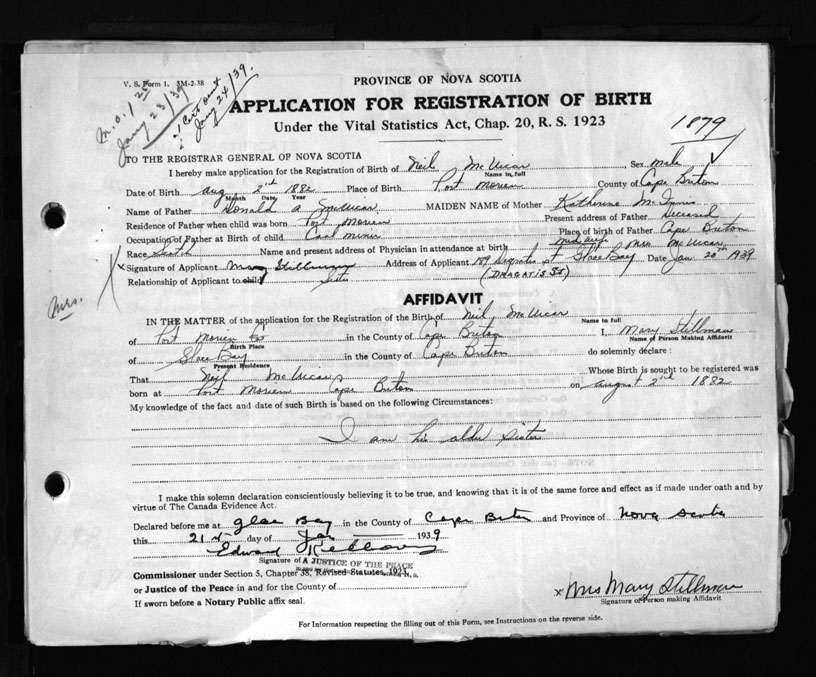 V. S. Form 1. 5M-2-38
M.O. 1
Jany 23/39
1 Cert
Jany 24/39.
PROVINCE OF NOVA SCOTIA
APPLICATION FOR REGISTRATION OF BIRTH
Under the Vital Statistics Act, Chap. 20, R. S. 1923
1879
TO THE REGISTRAR GENERAL OF NOVA SCOTIA
I hereby make application for the Registration of Birth of Neil McVicar Sex male
Name in full
Date of Birth Aug 2nd 1882 Place of Birth Port Morien County of Cape Breton
Month Date Year
Name of Father Donald A McVicar MAIDEN NAME of Mother Katherine McInnis
Residence of Father when child was born Port Morien Present address of Father Deceased
Occupation of Father at Birth of child Coal miner Place of birth of Father Cape Breton
Race Name and present address of Physician in attendance at birth midwife Mrs McVicar
Signature of Applicant Mary Stillman Address of Applicant st Glace Bay Date Jan 20th 1939
Relationship of Applicant to child Sister
Mrs.
AFFIDAVIT
IN THE MATTER of the application for the Registration of the Birth of Neil McVicar
Name in full
of Port Morien in the County of Cape Breton I, Mary Stillman
Birth Place Name of Person Making Affidavit
of Glace Bay in the County of Cape Breton do solemnly declare :
Present Residence
That Neil McVicar Whose Birth is sought to be registered was
born at Port Morien Cape Breton on August 2nd 1882
My knowledge of the fact and date of such Birth is based on the following Circumstances:
I am his older sister
I make this solemn declaration conscientiously believing it to be true, and knowing that it is of the same force and effect as if made under oath and by
virtue of The Canada Evidence Act.
Declared before me at Glace Bay in the County of Cape Breton and Province of Nova Scotia
this 21st day of Jan 1939
Edward
Signature of A JUSTICE OF THE PEACE
Commissioner under Section 5, Chapter 38, Revised Statutes, 1923
or Justice of the Peace in and for the County of
If sworn before a Notary Public affix seal.
x Mrs Mary Stillman
Signature of Person making Affidavit
For Information respecting the filling out of this Form, see Instructions on the reverse side.